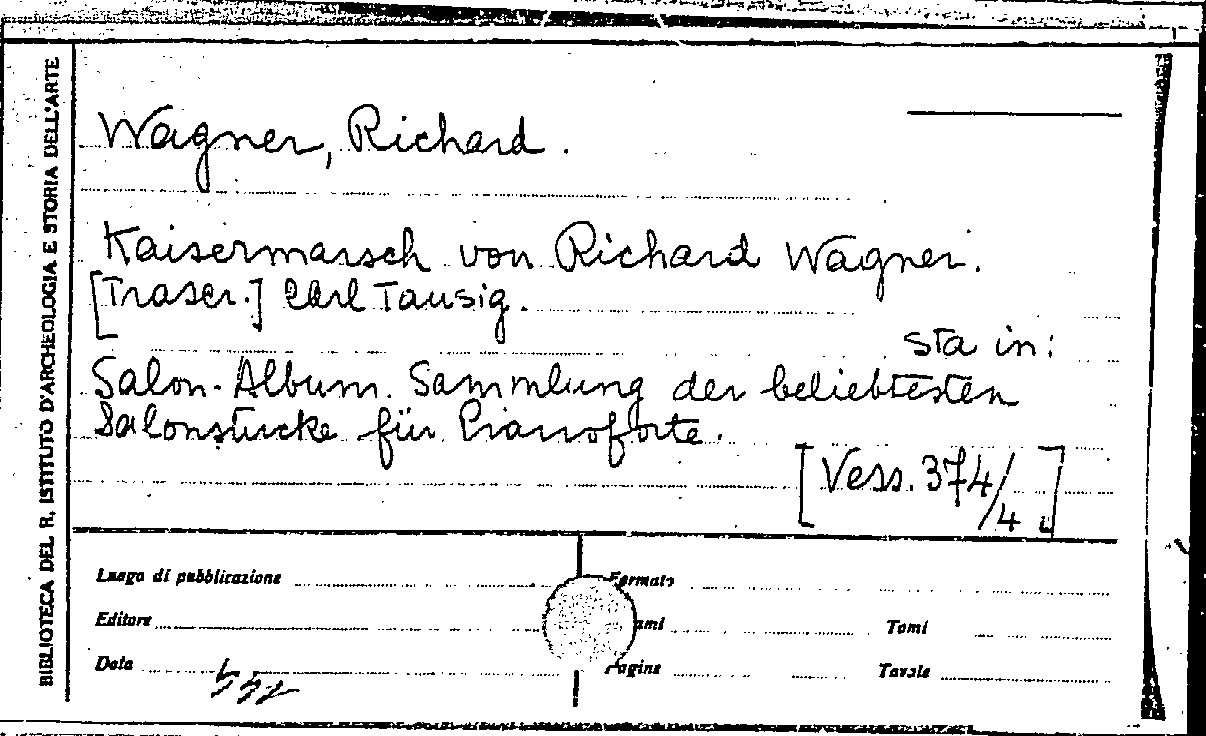 BIBLIOTECA DEL R. ISTITUTO D'ARCHEOLOGIA E STORIA DELL'ARTE
Wagner, Richard.
Kaisermarsch von Richard Wagner.
[Trascr.] Carl Tausig.
sta in:
Salon-Album. Sammlung der beliebtesten
Salonstücke für Pianoforte.
[Vess. 374/4]
Luogo di pubblicazione
Formato
Editore
Tomi
Data
Pagine
Tavole